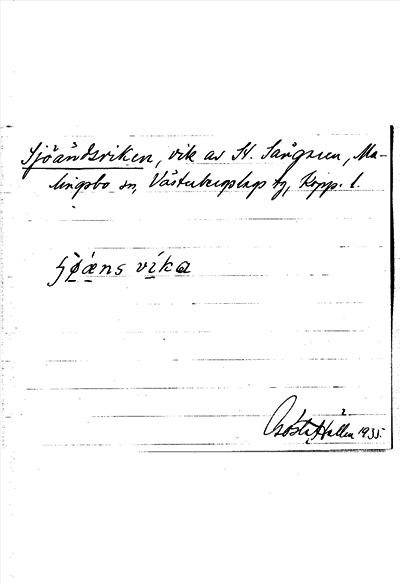 Sjöändsviken, vik av St. Sången, Ma-
lingsbo sn, Västerbergslags tg, Kopp. l.
ʃø̀æ̀ns vika
Gösta Hallén 1935.